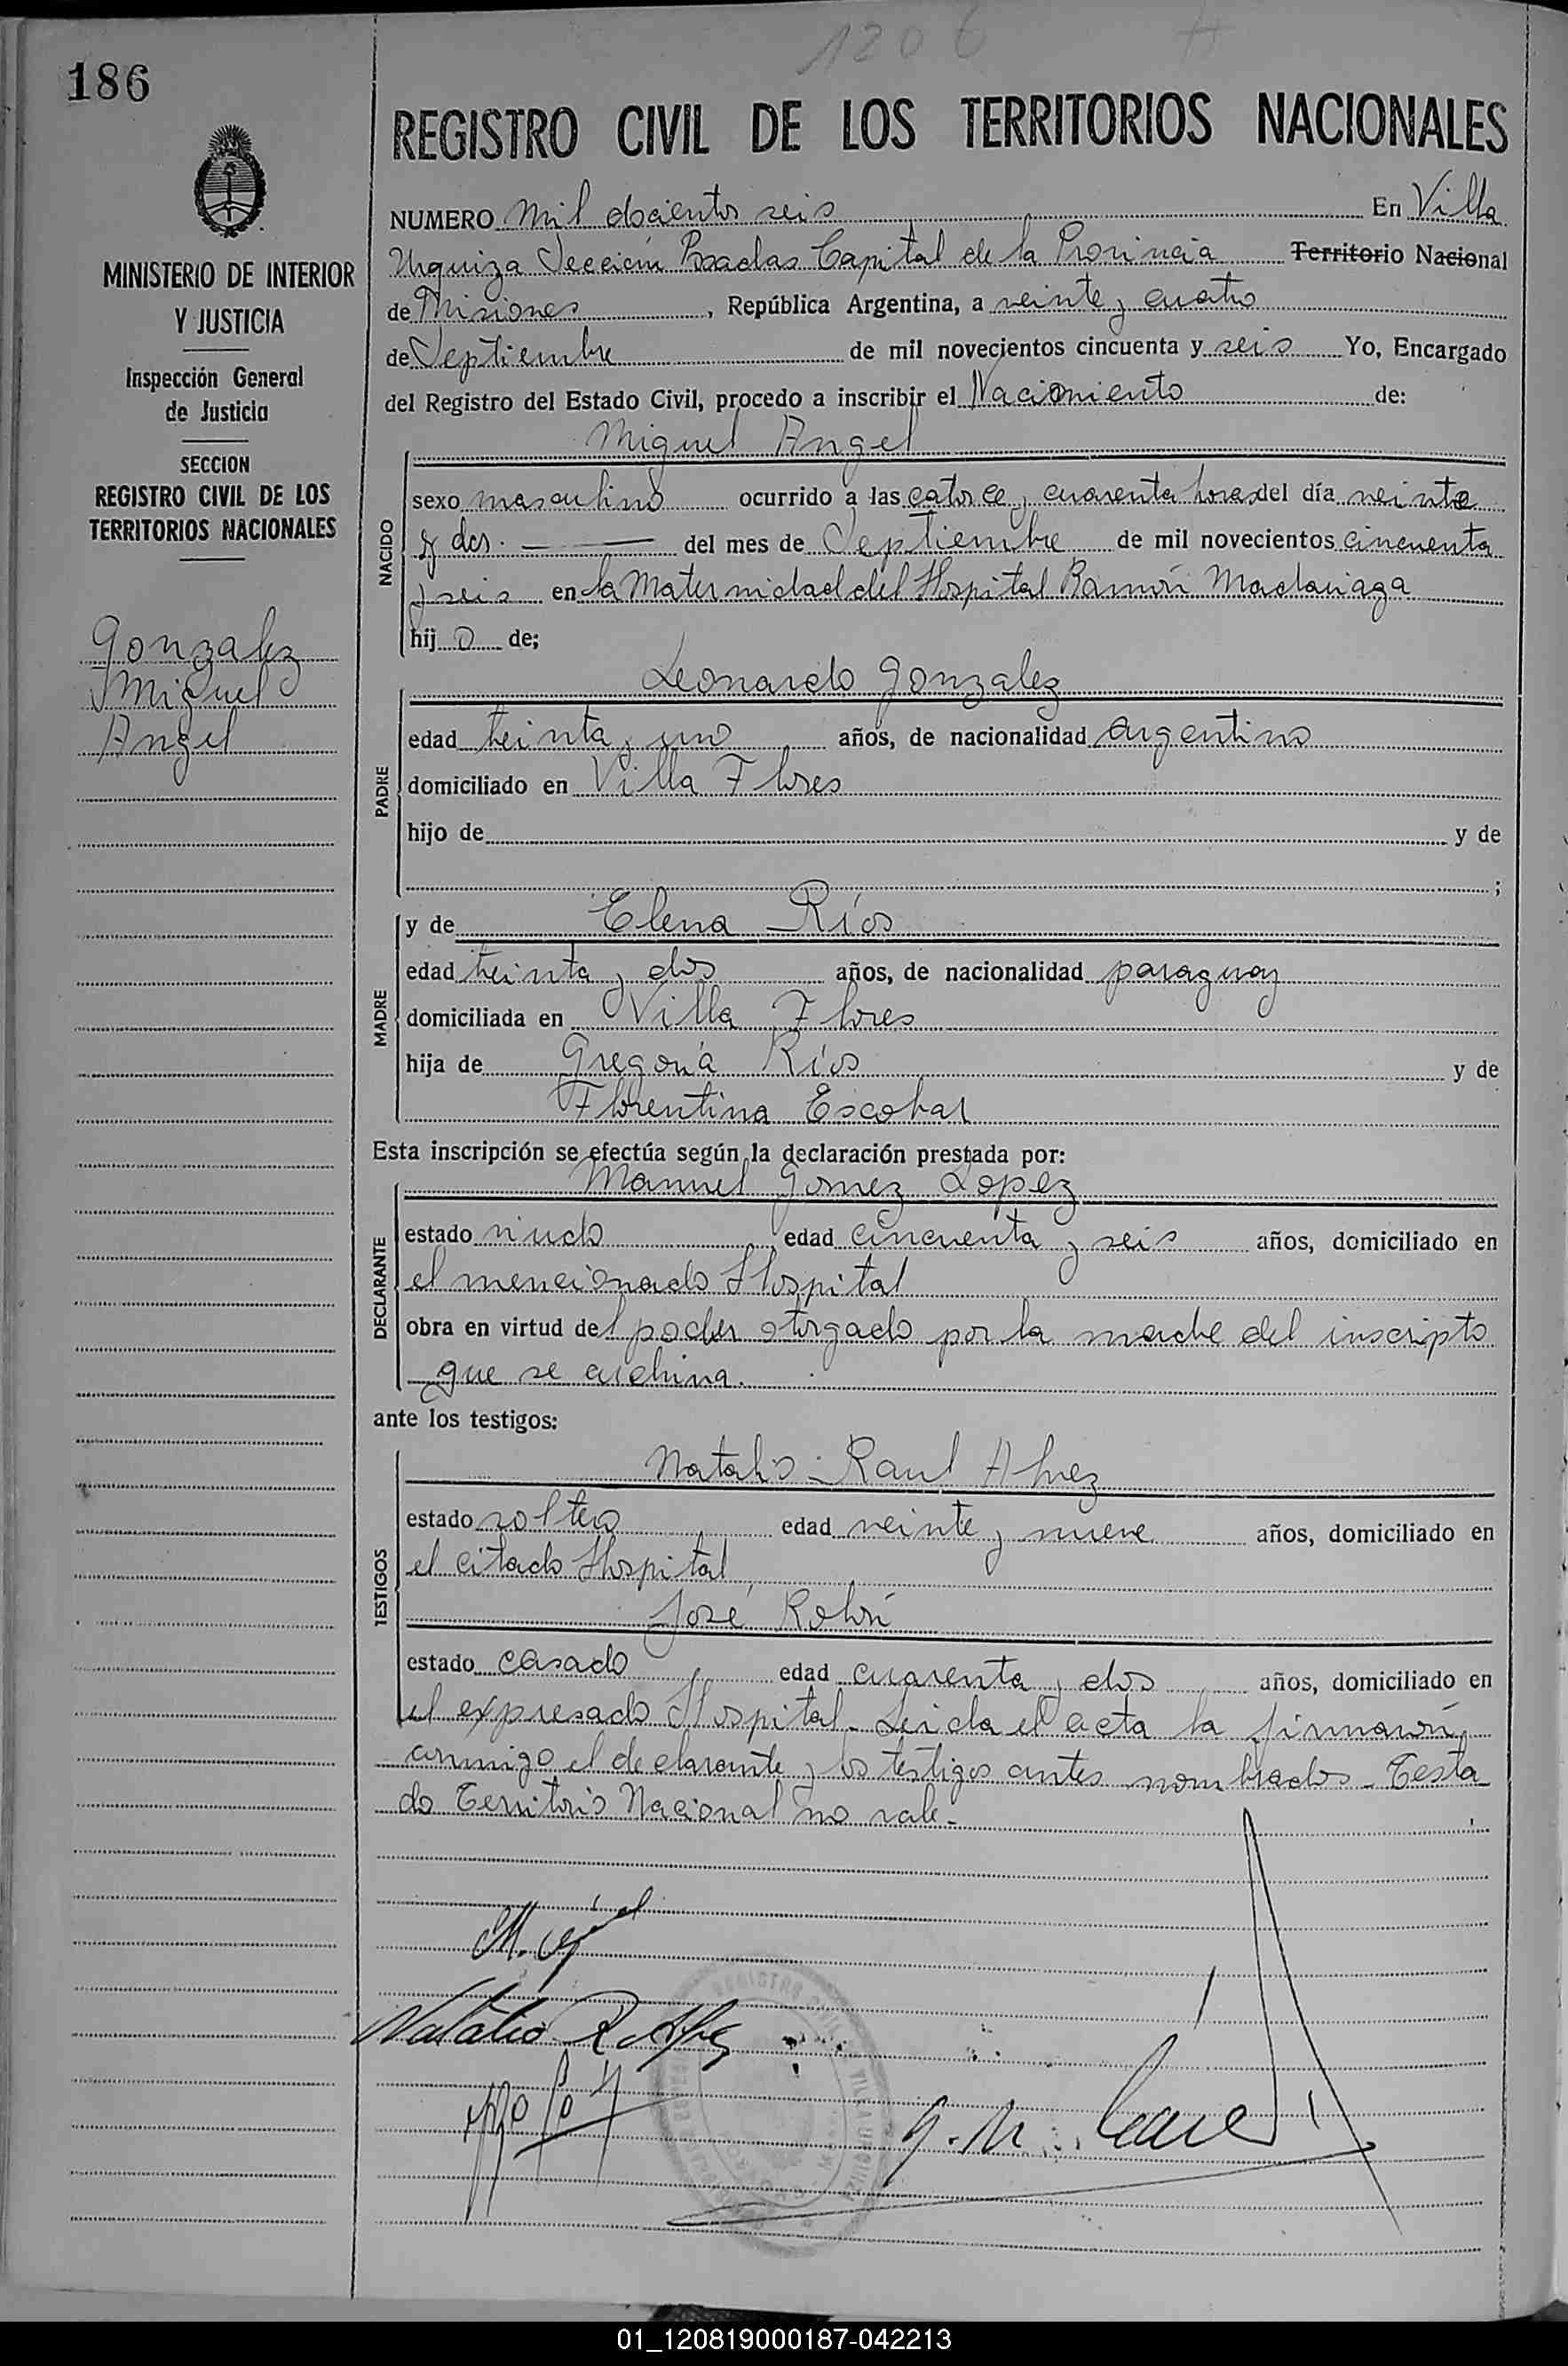 1206
186
REGISTRO CIVIL DE LOS TERRITORIOS NACIONALES
MINISTERIO DE INTERIOR
Y JUSTICIA
Inspección General
de Justicia
SECCION
REGISTRO CIVIL DE LOS
TERRITORIOS NACIONALES
Gonzalez
Miguel
Angel
NUMERO Mil doscientos seis En Villa
Urquiza Sección Posadas Capital de la Provincia Territorio Nacional
de Misiones, República Argentina, a veinte y cuatro
de Septiembre de mil novecientos cincuenta y seis Yo, Encargado
del Registro del Estado Civil, procedo a inscribir el Nacimiento de:
Miguel Angel
NACIDO
sexo masculino ocurrido a las catorce y cuarenta horas del día veinte
y dos. — del mes de Septiembre de mil novecientos cincuenta
y seis en la Maternidad del Hospital Ramón Madariaga
hijo de;
Leonardo Gonzalez
PADRE
edad treinta y uno años, de nacionalidad argentino
domiciliado en Villa Flores
hijo de y de
;
MADRE
y de Elena Ríos
edad treinta y dos años, de nacionalidad paraguay
domiciliada en Villa Flores
hija de Gregoria Ríos y de
Florentina Escobar
Esta inscripción se efectúa según la declaración prestada por:
Manuel Gomez Lopez
DECLARANTE
estado viudo edad cincuenta y seis años, domiciliado en
el mencionado Hospital
obra en virtud del poder otorgado por la madre del inscripto
que se archiva.
ante los testigos:
Natalio Raul Alvez
TESTIGOS
estado soltero edad veinte y nueve años, domiciliado en
el citado Hospital
José
estado casado edad cuarenta y dos años, domiciliado en
el expresado Hospital. Leida el acta la firmaron
conmigo el declarante y los testigos antes nombrados. Testa
do Territorio Nacional no vale.
Natalio R.
01_120819000187-042213